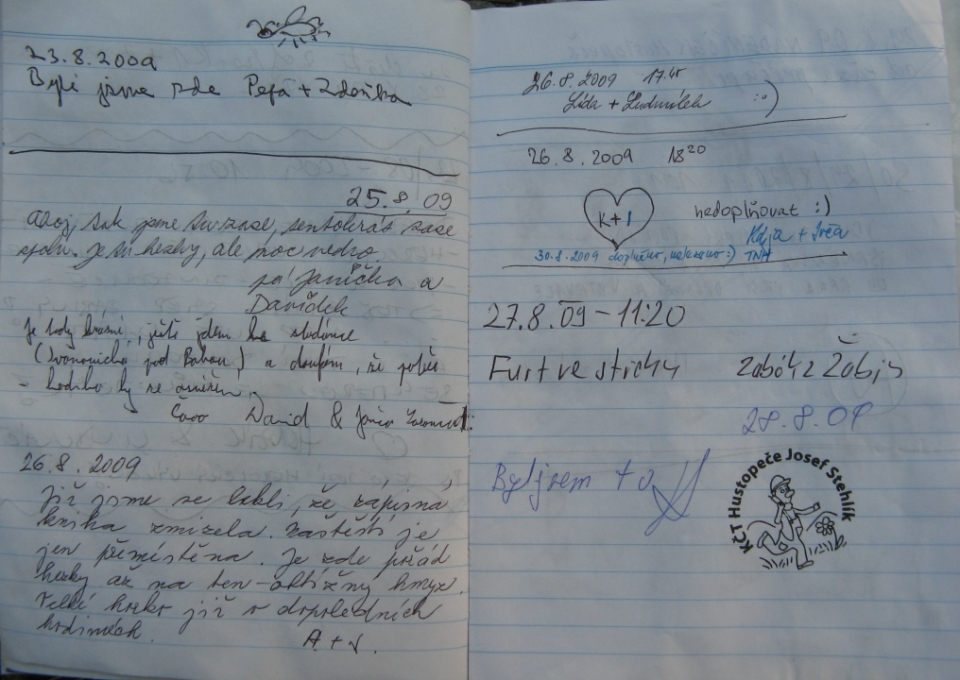 23.8.2009
Byli jsme zde Pepa + Zdeňka
25.8.09
Ahoj, tak jsme tu zase, tentokrát zase
spolu. Je tu hezky, ale moc vedro.
Janička a
Davídek
Je tady krásně, ještě jdem ke studánce
pod Babou) a doufám, že potře-
Čao David & Jana
26.8.2009
Již jsme se lekli, že zápisná
kniha zmizela. Naštěstí je
jen přemístěna. Je zde pořád
hezky až na ten obtížný hmyz.
Velké horko již v dopoledních
hodinách.
A + V.
26.8.2009 17.45
Lída + Ludmilek :o)
26.8.2009 18 20
K+I
nedoplňovat :)
Kája + Iva
30.8.2009 doplněno, :)
27.8.09 - 11:20
Furt ve střehu
28.8.09
Byl jsem tu
KČT Hustopeče Josef Stehlík